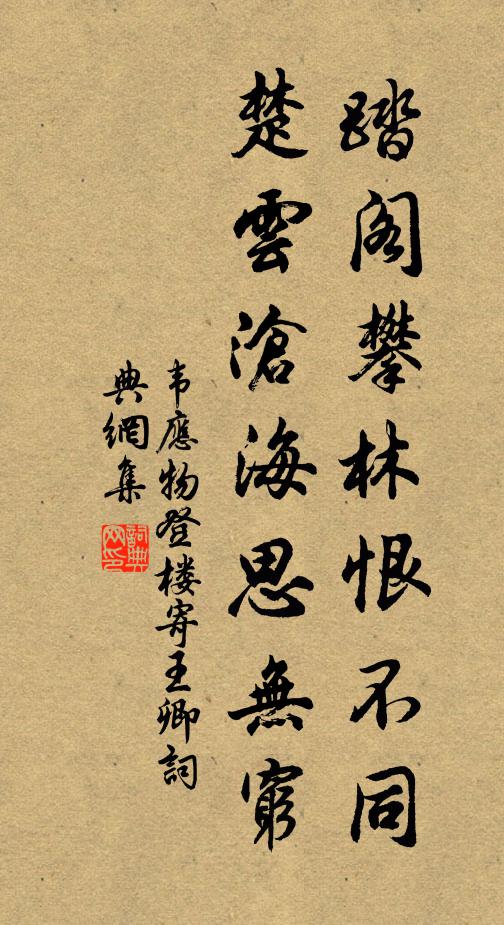 踏阁攀林恨不同
楚雲滄海思無窮
韦應物登楼寄王卿詞
典網集
詞典
网印